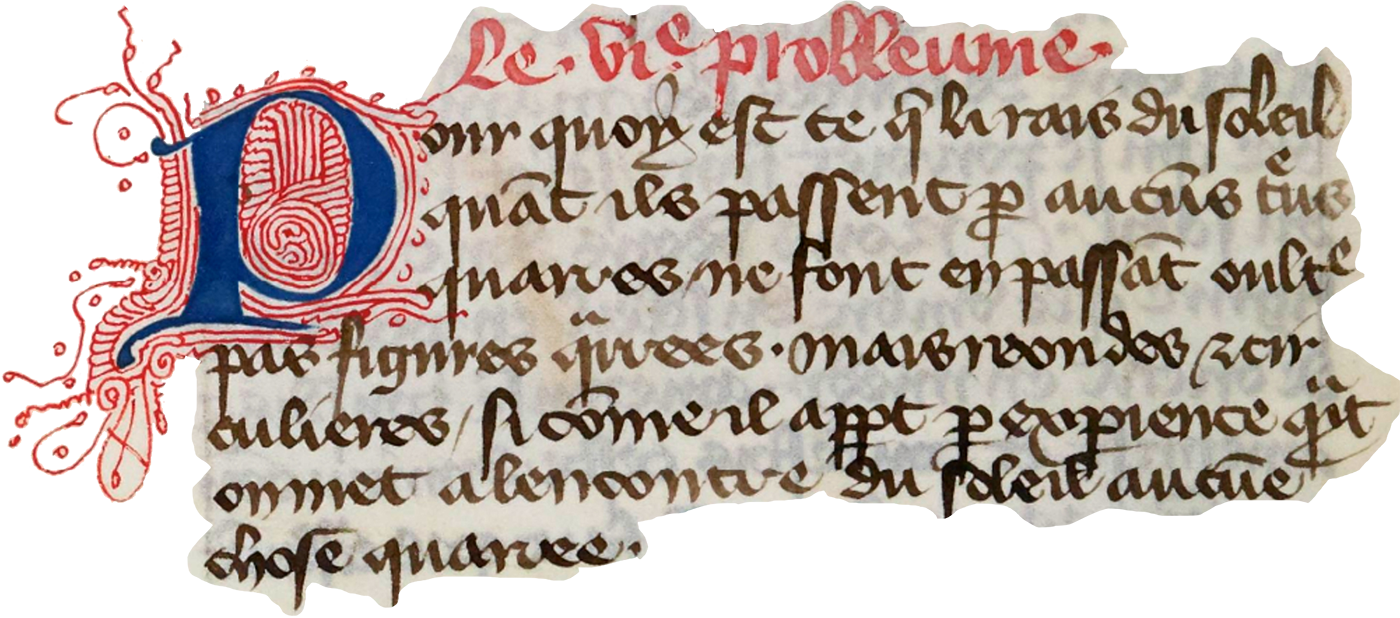 Le · vi͛e probleume ·
Pour quoy est ce q̃ li rais du soleil
quãt ils passent ꝑ aucũs treͤus
quarres ne font en passãt oultᵉ
pas figures qᵃrrees · mais reondes ⁊ cir
culieres / si cõme il appt ꝑ exꝑience qᵃt
on met a lencontre du soleil aucũe
chose quarree ·